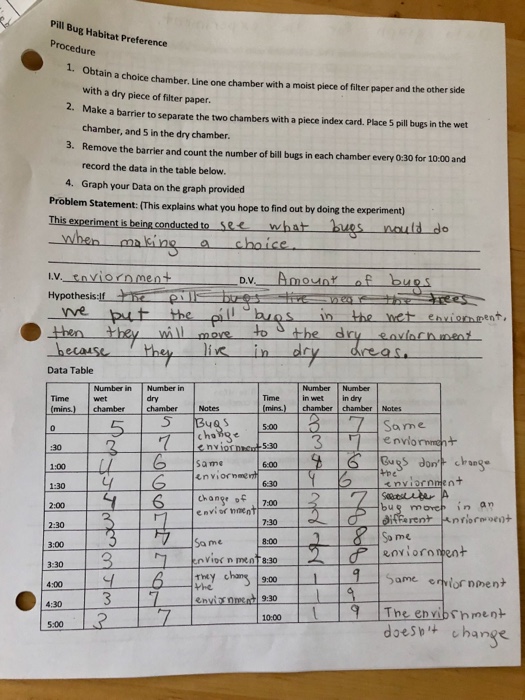 Pill Bug Habitat Preference
Procedure
1. Obtain a choice chamber. Line one chamber with a moist piece of filter paper and the other side
with a dry piece of filter paper.
2. Make a barrier to separate the two chambers with a piece index card. Place 5 pill bugs in the wet
chamber, and 5 in the dry chamber.
3. Remove the barrier and count the number of bill bugs in each chamber every 0:30 for 10:00 and
record the data in the table below.
4. Graph your Data on the graph provided
Problem Statement: (This explains what you hope to find out by doing the experiment)
This experiment is being conducted to see what bugs would do
when making a choice.
I.V. enviornment D.V. Amount of bugs
Hypothesis: If the pill bugs live near the trees
we put the pill bugs in the wet enviornment,
then they will move to the dry enviornment
because they live in dry areas.
Data Table
Time (mins.) Number in wet chamber Number in dry chamber Notes Time (mins.) Number in wet chamber Number in dry chamber Notes
0 5 5 Bugs change 5:00 3 7 Same
:30 3 7 enviornment 5:30 3 7 enviornment
1:00 4 6 Same 6:00 6 Bugs don't change
1:30 4 6 enviornment 6:30 4 6 the enviornment
2:00 4 6 change of 7:00 3 7 A bug moves in an
2:30 3 7 enviornment 7:30 2 8 different enviornment
3:00 3 7 Same 8:00 2 8 Same
3:30 3 7 enviornment 8:30 2 8 enviornment
4:00 4 6 They chang the 9:00 1 9 Same enviornment
4:30 3 7 enviornment 9:30 1 9
5:00 3 7 10:00 1 9 The enviornment
doesn't change